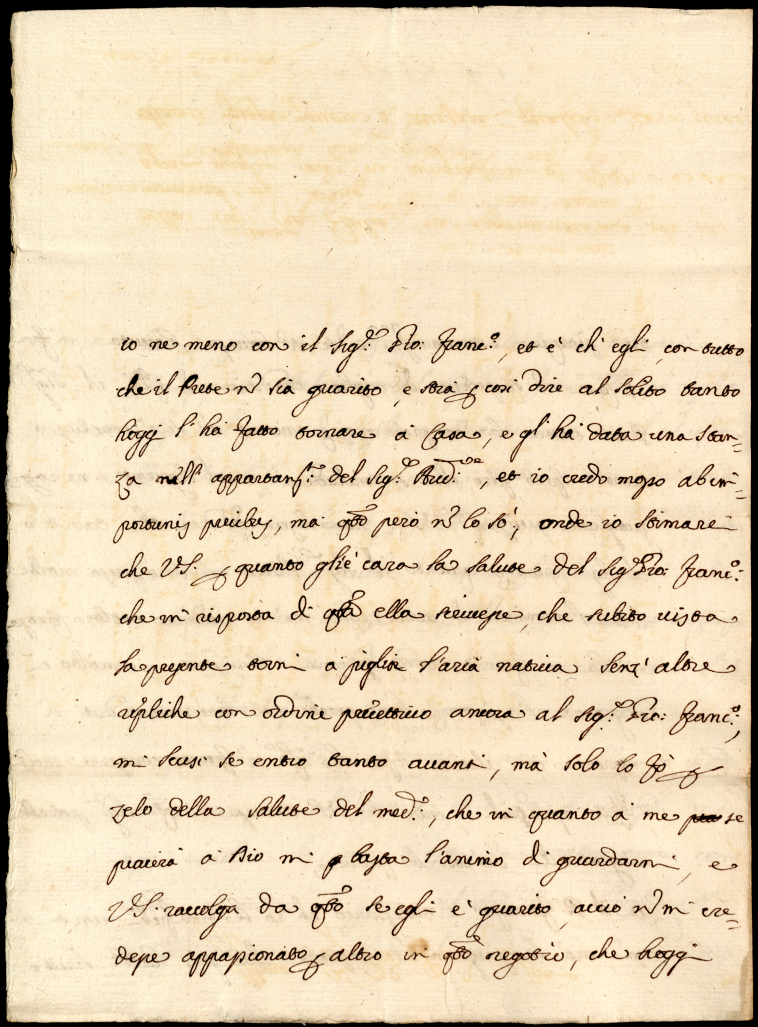 io ne meno con il Sig.r Gio: Franc.o, et è ch'egli, con tutto
che il Prete nō sia guarito, e stia p così dire al solito tanto
hoggi l'hà fatto tornare à Casa, e gl'hà data una stan=
za nell'appartam.to del Sig.r, et io credo mosso ab im=
portunis precibus, mà q.sto però nō lo sò; onde io stimarei
che V.S. p quanto gl'è cara la salute del Sig.r Gio: Franc.o:
che in risposta di q.sta ella scrivesse, che subito vista
la presente torni à pigliar l'aria nativa senz'altre
repliche con ordine precettivo ancora al Sig.r Gio: Franc.o;
mi scusi se entro tanto avanti, mà solo lo fò p
zelo della salute del med.o, che in quanto à me se
piacerà à Dio mi basta l'animo di guardarmi, e
V.S. raccolga da q.sto se egli è guarito, acciò nō mi cre=
desse appassionato p altro in q.sto negotio, che hoggi